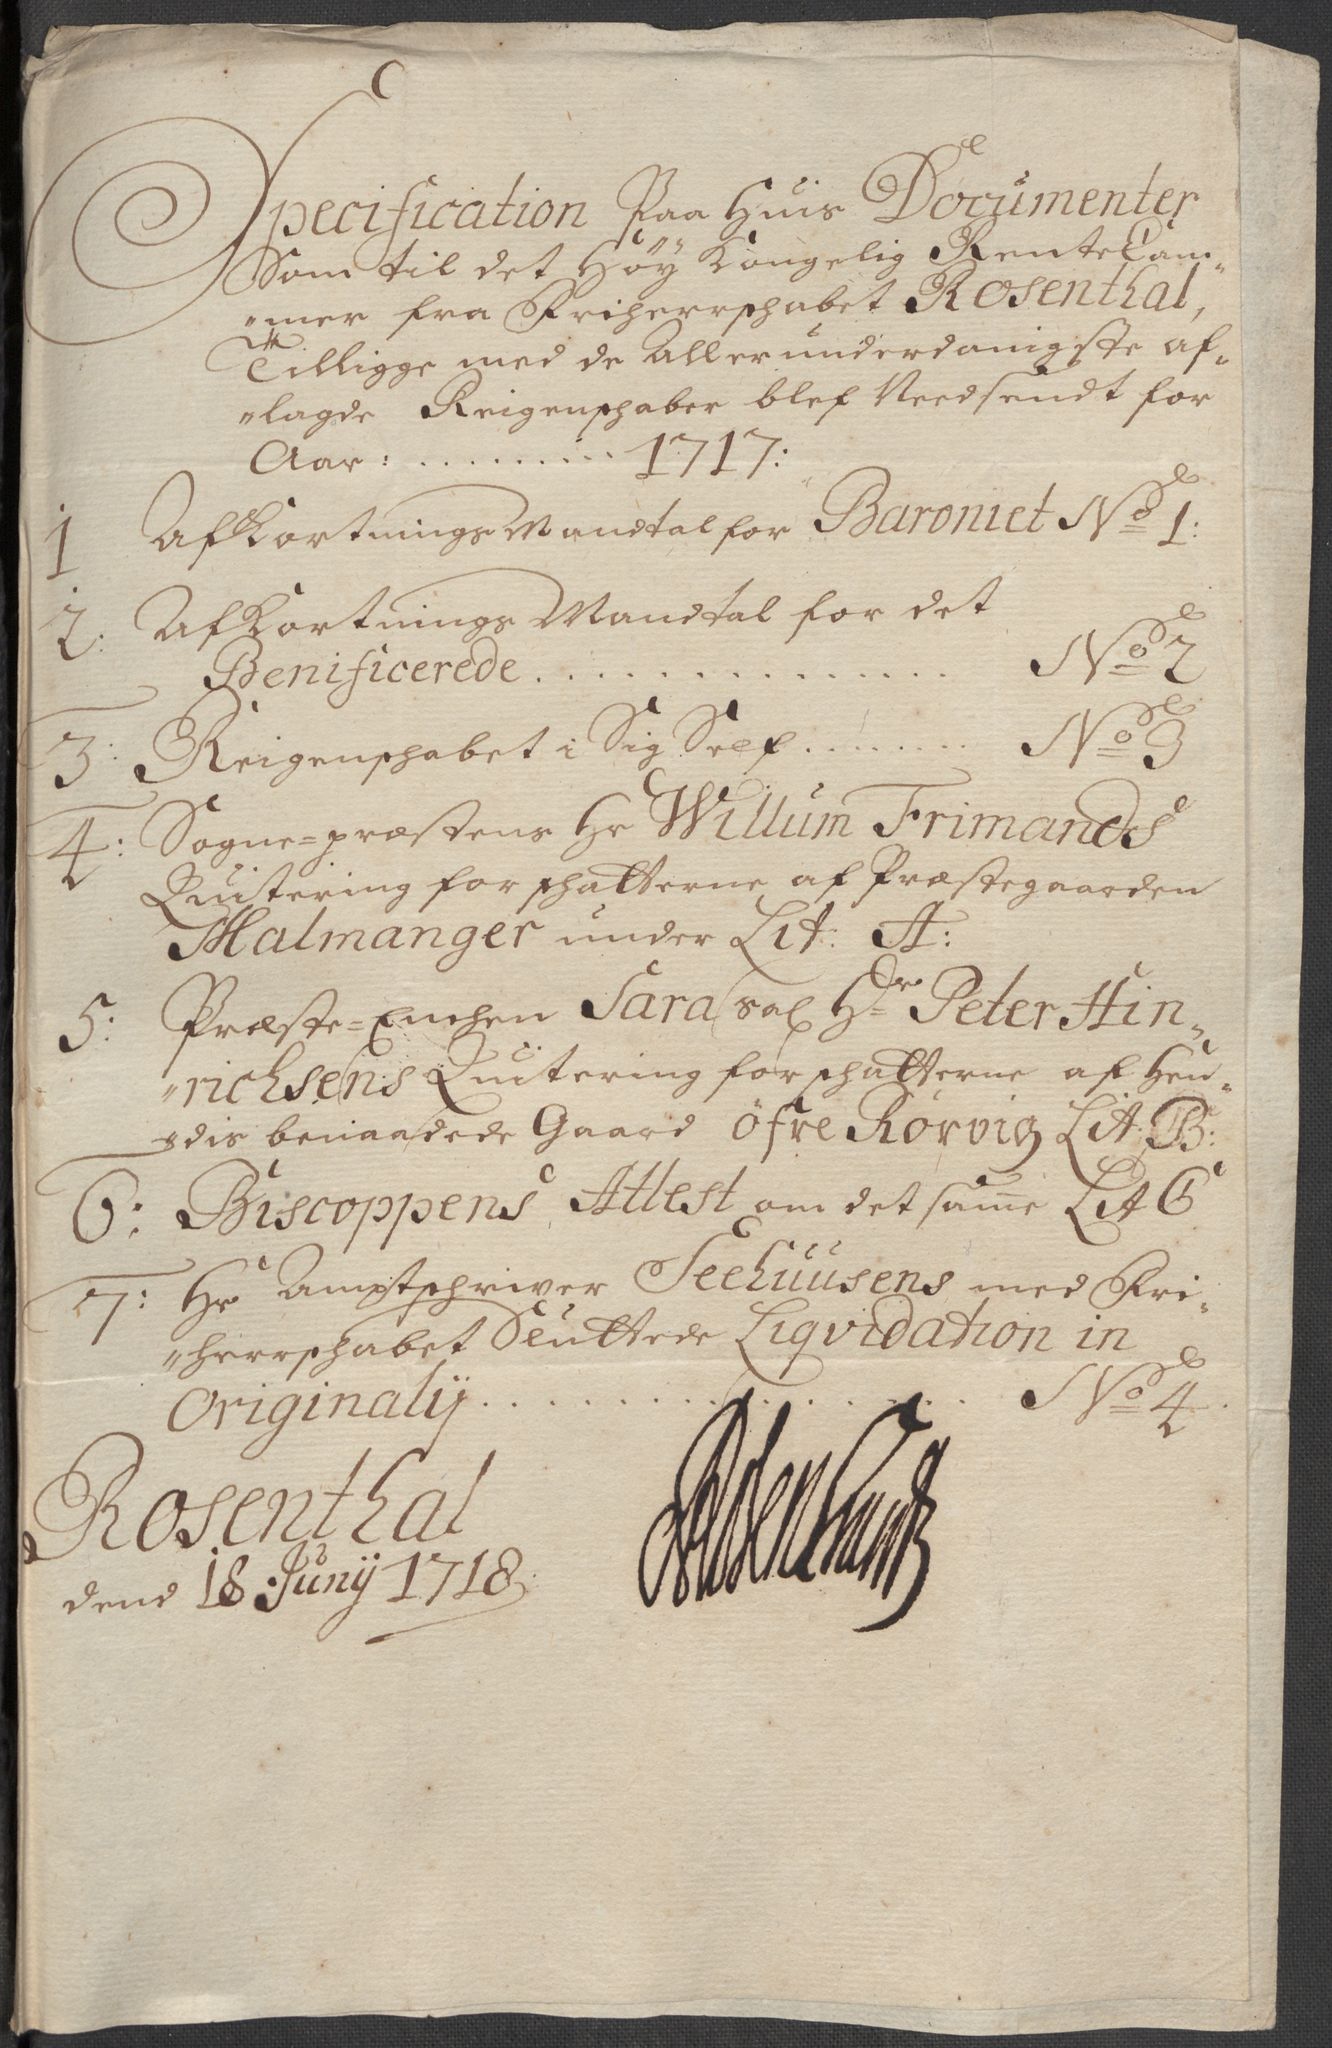 Specification Paa Huis Documenter
Som til det Höy Kongelig RenteCam-
mer fra Friherrschabet Rosenthal,
Tillige med de Allerunderdanigste af-
lagde Reigenschaber blef Needsendt for
Aar: ......... 1717:
1 AfKortnings Mandtal for Baroniet No 1:
2: AfKortnings Mandtal for det
Benificerede . . . . . . . . . . . . . . No 2
3: Reigenschabet i Sig Self ........ No 3
4: Sogne=præstens Hr Willum Frimands
Quitering for schatterne af Præstegaarden
Malmanger under Lit: A:
5: Præste=Enchen Sara Sal Hr Peter Hin-
richsens Quitering for schatterne af Hen-
dis benaadede Gaard öfre Rörvig Lit: B:
6: Biscoppens Attest om det samme Lit C
7: Hr Amptschriver Seehuusens med Fri-
herrschabet Sluttede Liqvidation in
Originalij . . . . . . . . . . . . . . No 4
Rosenthal
dend 18 Junij 1718
Rosenkrantz